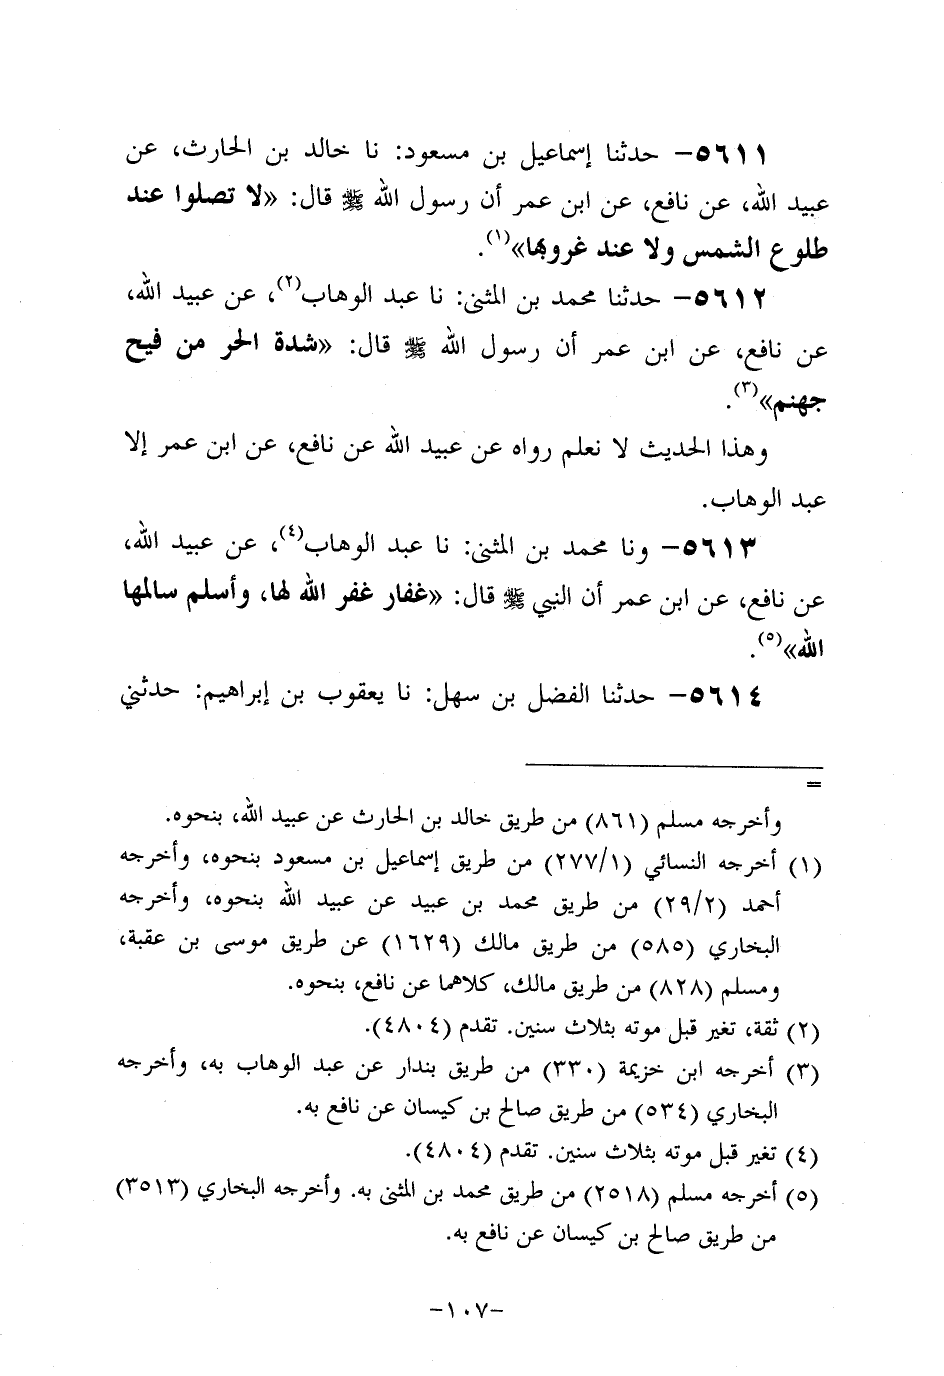 ٥٦١١– حدثنا إسماعيل بن مسعود: نا خالد بن الحارث، عن
عبيد الله، عن نافع، عن ابن عمر أن رسول الله ﷺ قال: «لا تصلوا عند
طلوع الشمس ولا عند غروبها»(١).
٥٦١٢– حدثنا محمد بن المثنى: نا عبد الوهاب(٢)، عن عبيد الله،
عن نافع، عن ابن عمر أن رسول الله ﷺ قال: «شدة الحر من فيح
جهنم»(٣).
وهذا الحديث لا نعلم رواه عن عبيد الله عن نافع، عن ابن عمر إلا
عبد الوهاب.
٥٦١٣– ونا محمد بن المثنى: نا عبد الوهاب(٤)، عن عبيد الله،
عن نافع، عن ابن عمر أن النبي ﷺ قال: «غفار غفر الله لها، وأسلم سالمها
الله»(٥).
٥٦١٤– حدثنا الفضل بن سهل: نا يعقوب بن إبراهيم: حدثني
=
وأخرجه مسلم (٨٦١) من طريق خالد بن الحارث عن عبيد الله، بنحوه.
(١) أخرجه النسائي (٢٧٧/١) من طريق إسماعيل بن مسعود بنحوه، وأخرجه
أحمد (٢٩/٢) من طريق محمد بن عبيد عن عبيد الله بنحوه، وأخرجه
البخاري (٥٨٥) من طريق مالك (١٦٢٩) عن طريق موسى بن عقبة،
ومسلم (٨٢٨) من طريق مالك، كلاهما عن نافع، بنحوه.
(٢) ثقة، تغير قبل موته بثلاث سنين. تقدم (٤٨٠٤).
(٣) أخرجه ابن خزيمة (٣٣٠) من طريق بندار عن عبد الوهاب به، وأخرجه
البخاري (٥٣٤) من طريق صالح بن كيسان عن نافع به.
(٤) تغير قبل موته بثلاث سنين. تقدم (٤٨٠٤).
(٥) أخرجه مسلم (٢٥١٨) من طريق محمد بن المثنى به. وأخرجه البخاري (٣٥١٣)
من طريق صالح بن كيسان عن نافع به.
–١٠٧–